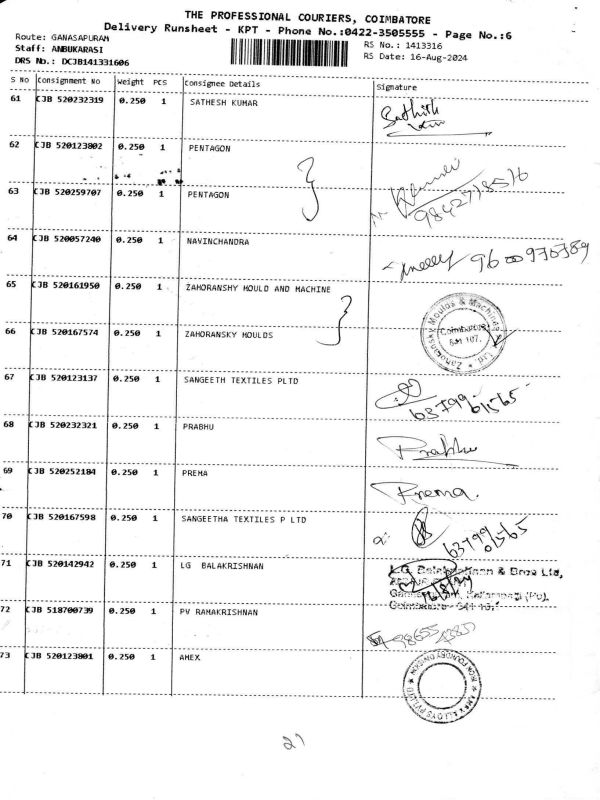 THE PROFESSIONAL COURIERS, COIMBATORE
Delivery Runsheet - KPT - Phone No.:0422-3505555 - Page No.:6
Route: GANASAPURAM
Staff: ANBUKARASI
DRS No.: DCJB141331606
RS No.: 1413316
RS Date: 16-Aug-2024
S No Consignment No Weight PCS Consignee Details Signature
61 CJB 520232319 0.250 1 SATHESH KUMAR Sathish
62 CJB 520123802 0.250 1 PENTAGON
63 CJB 520259707 0.250 1 PENTAGON 9842718516
64 CJB 520057240 0.250 1 NAVINCHANDRA 9600970789
65 CJB 520161950 0.250 1 ZAHORANSHY MOULD AND MACHINE
66 CJB 520167574 0.250 1 ZAHORANSKY MOULDS
Zahoransky Moulds & Machines Ltd Coimbatore 641 107.
67 CJB 520123137 0.250 1 SANGEETH TEXTILES PLTD 63799 61565
68 CJB 520232321 0.250 1 PRABHU Prabhu
69 CJB 520252184 0.250 1 PREMA Prema.
70 CJB 520167598 0.250 1 SANGEETHA TEXTILES P LTD 63799 61565
71 CJB 520142942 0.250 1 LG BALAKRISHNAN L.G. Balakrishnan & Bros Ltd,
72 CJB 518700739 0.250 1 PV RAMAKRISHNAN
73 CJB 520123801 0.250 1 AMEX
21